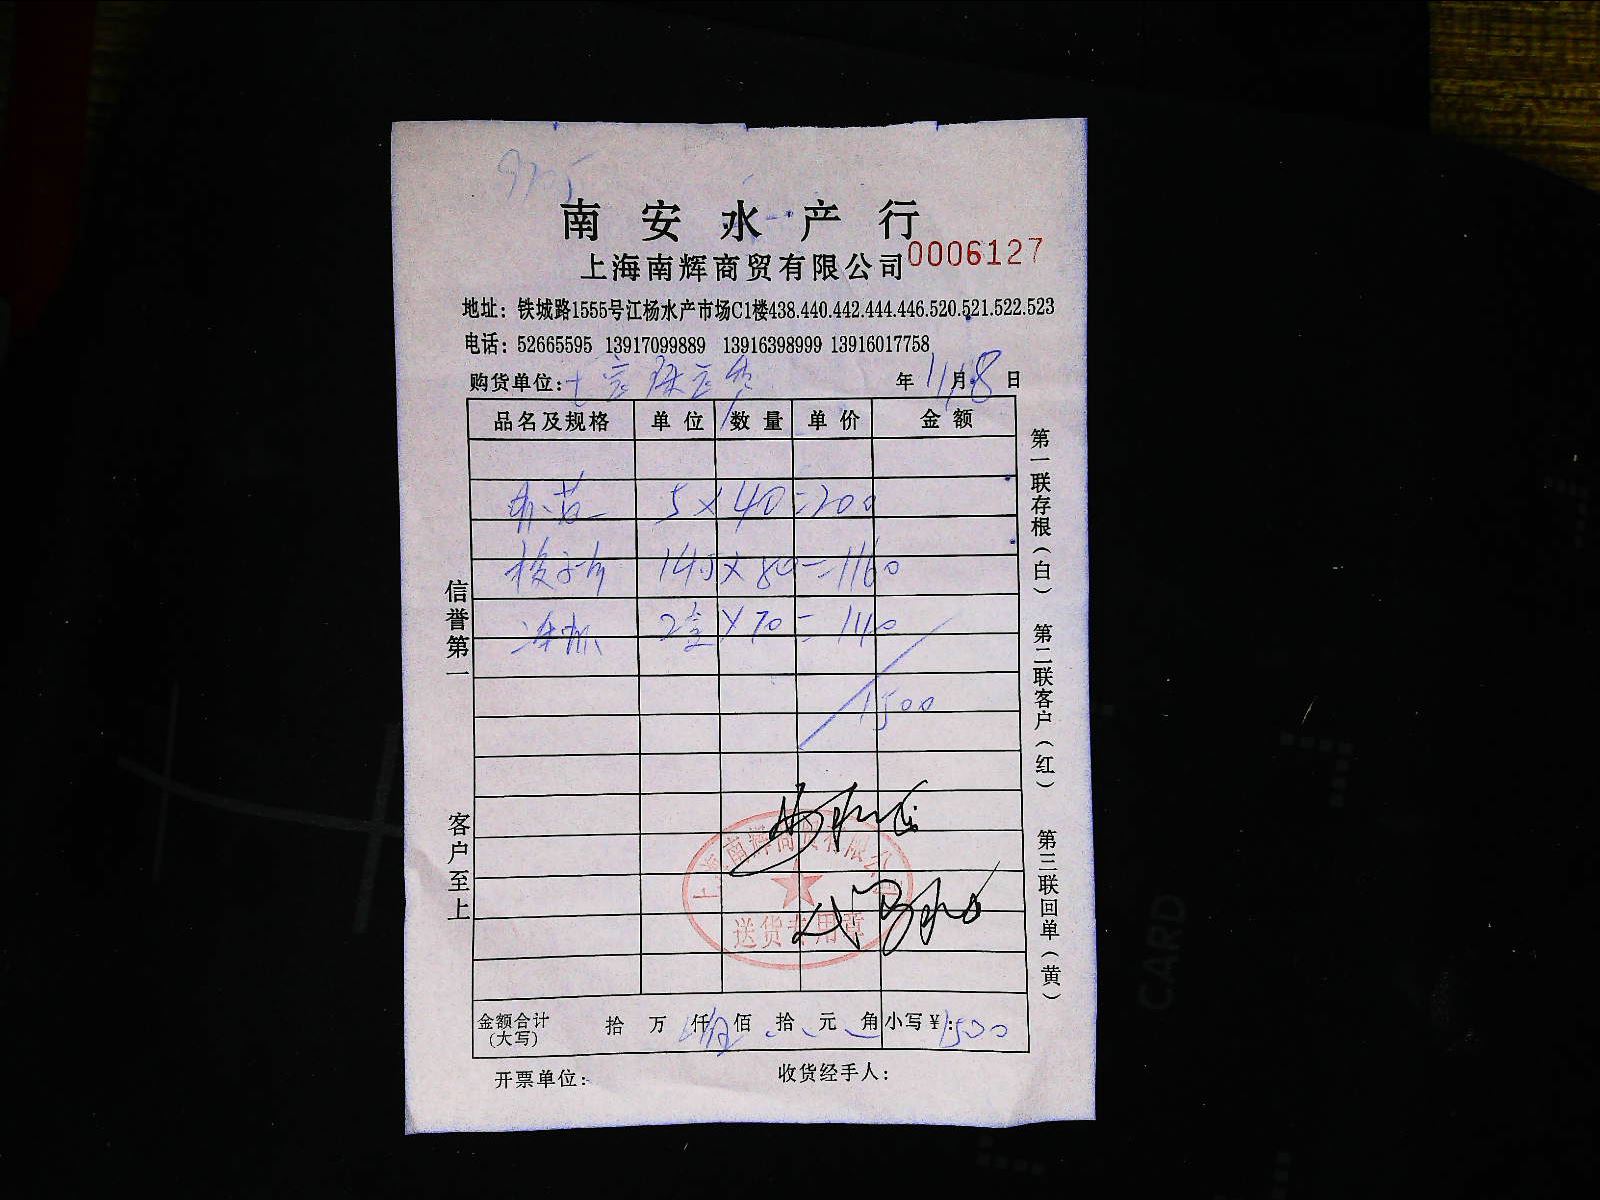 南安水产行
上海南辉商贸有限公司 0006127
地址：铁城路1555号江杨水产市场C1楼438.440.442.444.446.520.521.522.523
电话：52665595 13917099889 13916398999 13916017758
购货单位： 年 11 月 8 日
品名及规格 单位 数量 单价 金额
5 × 40 = 200
145 × 80 = 1160
2盒 × 70 = 140
1500
信誉第一
客户至上
第一联存根（白）
第二联客户（红）
第三联回单（黄）
上海南辉商贸有限公司
送货专用章
金额合计 拾 万 仟 伍 佰 拾 元 角 小写¥：1500
（大写）
开票单位： 收货经手人：